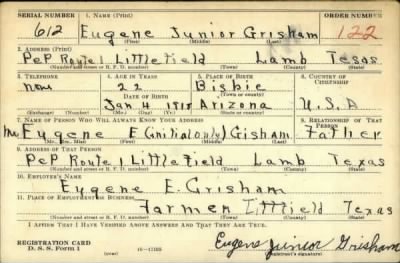 SERIAL NUMBER 1. NAME (Print) ORDER NUMBER
612 Eugene Junior Grisham 122
(First) (Middle) (Last)
2. ADDRESS (Print)
PeP Route 1 Littlefield Lamb Texas
(Number and street or R. F. D. number) (Town) (County) (State)
3. TELEPHONE 4. AGE IN YEARS 5. PLACE OF BIRTH 6. COUNTRY OF CITIZENSHIP
none 22 Bisbie
DATE OF BIRTH (Town or county)
Jan 4 1918 Arizona U.S.A
(Exchange) (Number) (Mo.) (Day) (Yr.) (State or country)
7. NAME OF PERSON WHO WILL ALWAYS KNOW YOUR ADDRESS 8. RELATIONSHIP OF THAT PERSON
Mr Eugene E (initial only) Gisham Father
(Mr., Mrs., Miss) (First) (Middle) (Last)
9. ADDRESS OF THAT PERSON
PeP Route 1 Littlefield Lamb Texas
(Number and street or R. F. D. number) (Town) (County) (State)
10. EMPLOYER'S NAME
Eygene E. Grisham
11. PLACE OF EMPLOYMENT OR BUSINESS
Farmer Littlfield Texas
(Number and street or R. F. D. number) (Town) (County) (State)
I AFFIRM THAT I HAVE VERIFIED ABOVE ANSWERS AND THAT THEY ARE TRUE.
REGISTRATION CARD
D. S. S. Form 1 Eugene Junior Grisham
(Registrant's signature)